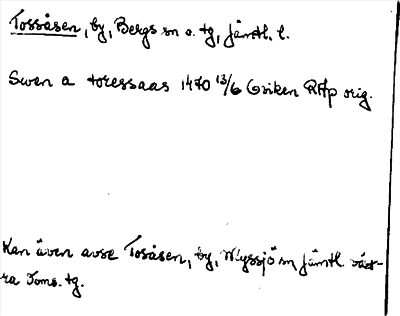 Tossåsen, by, Bergs sn o. tg, Jämtl. l.
Swen a toressaas 1470 13/6 Gviken RAp orig.
Kan även avse Tosåsen, by, Myssjö sn Jämtl. väst-
ra Doms. tg.